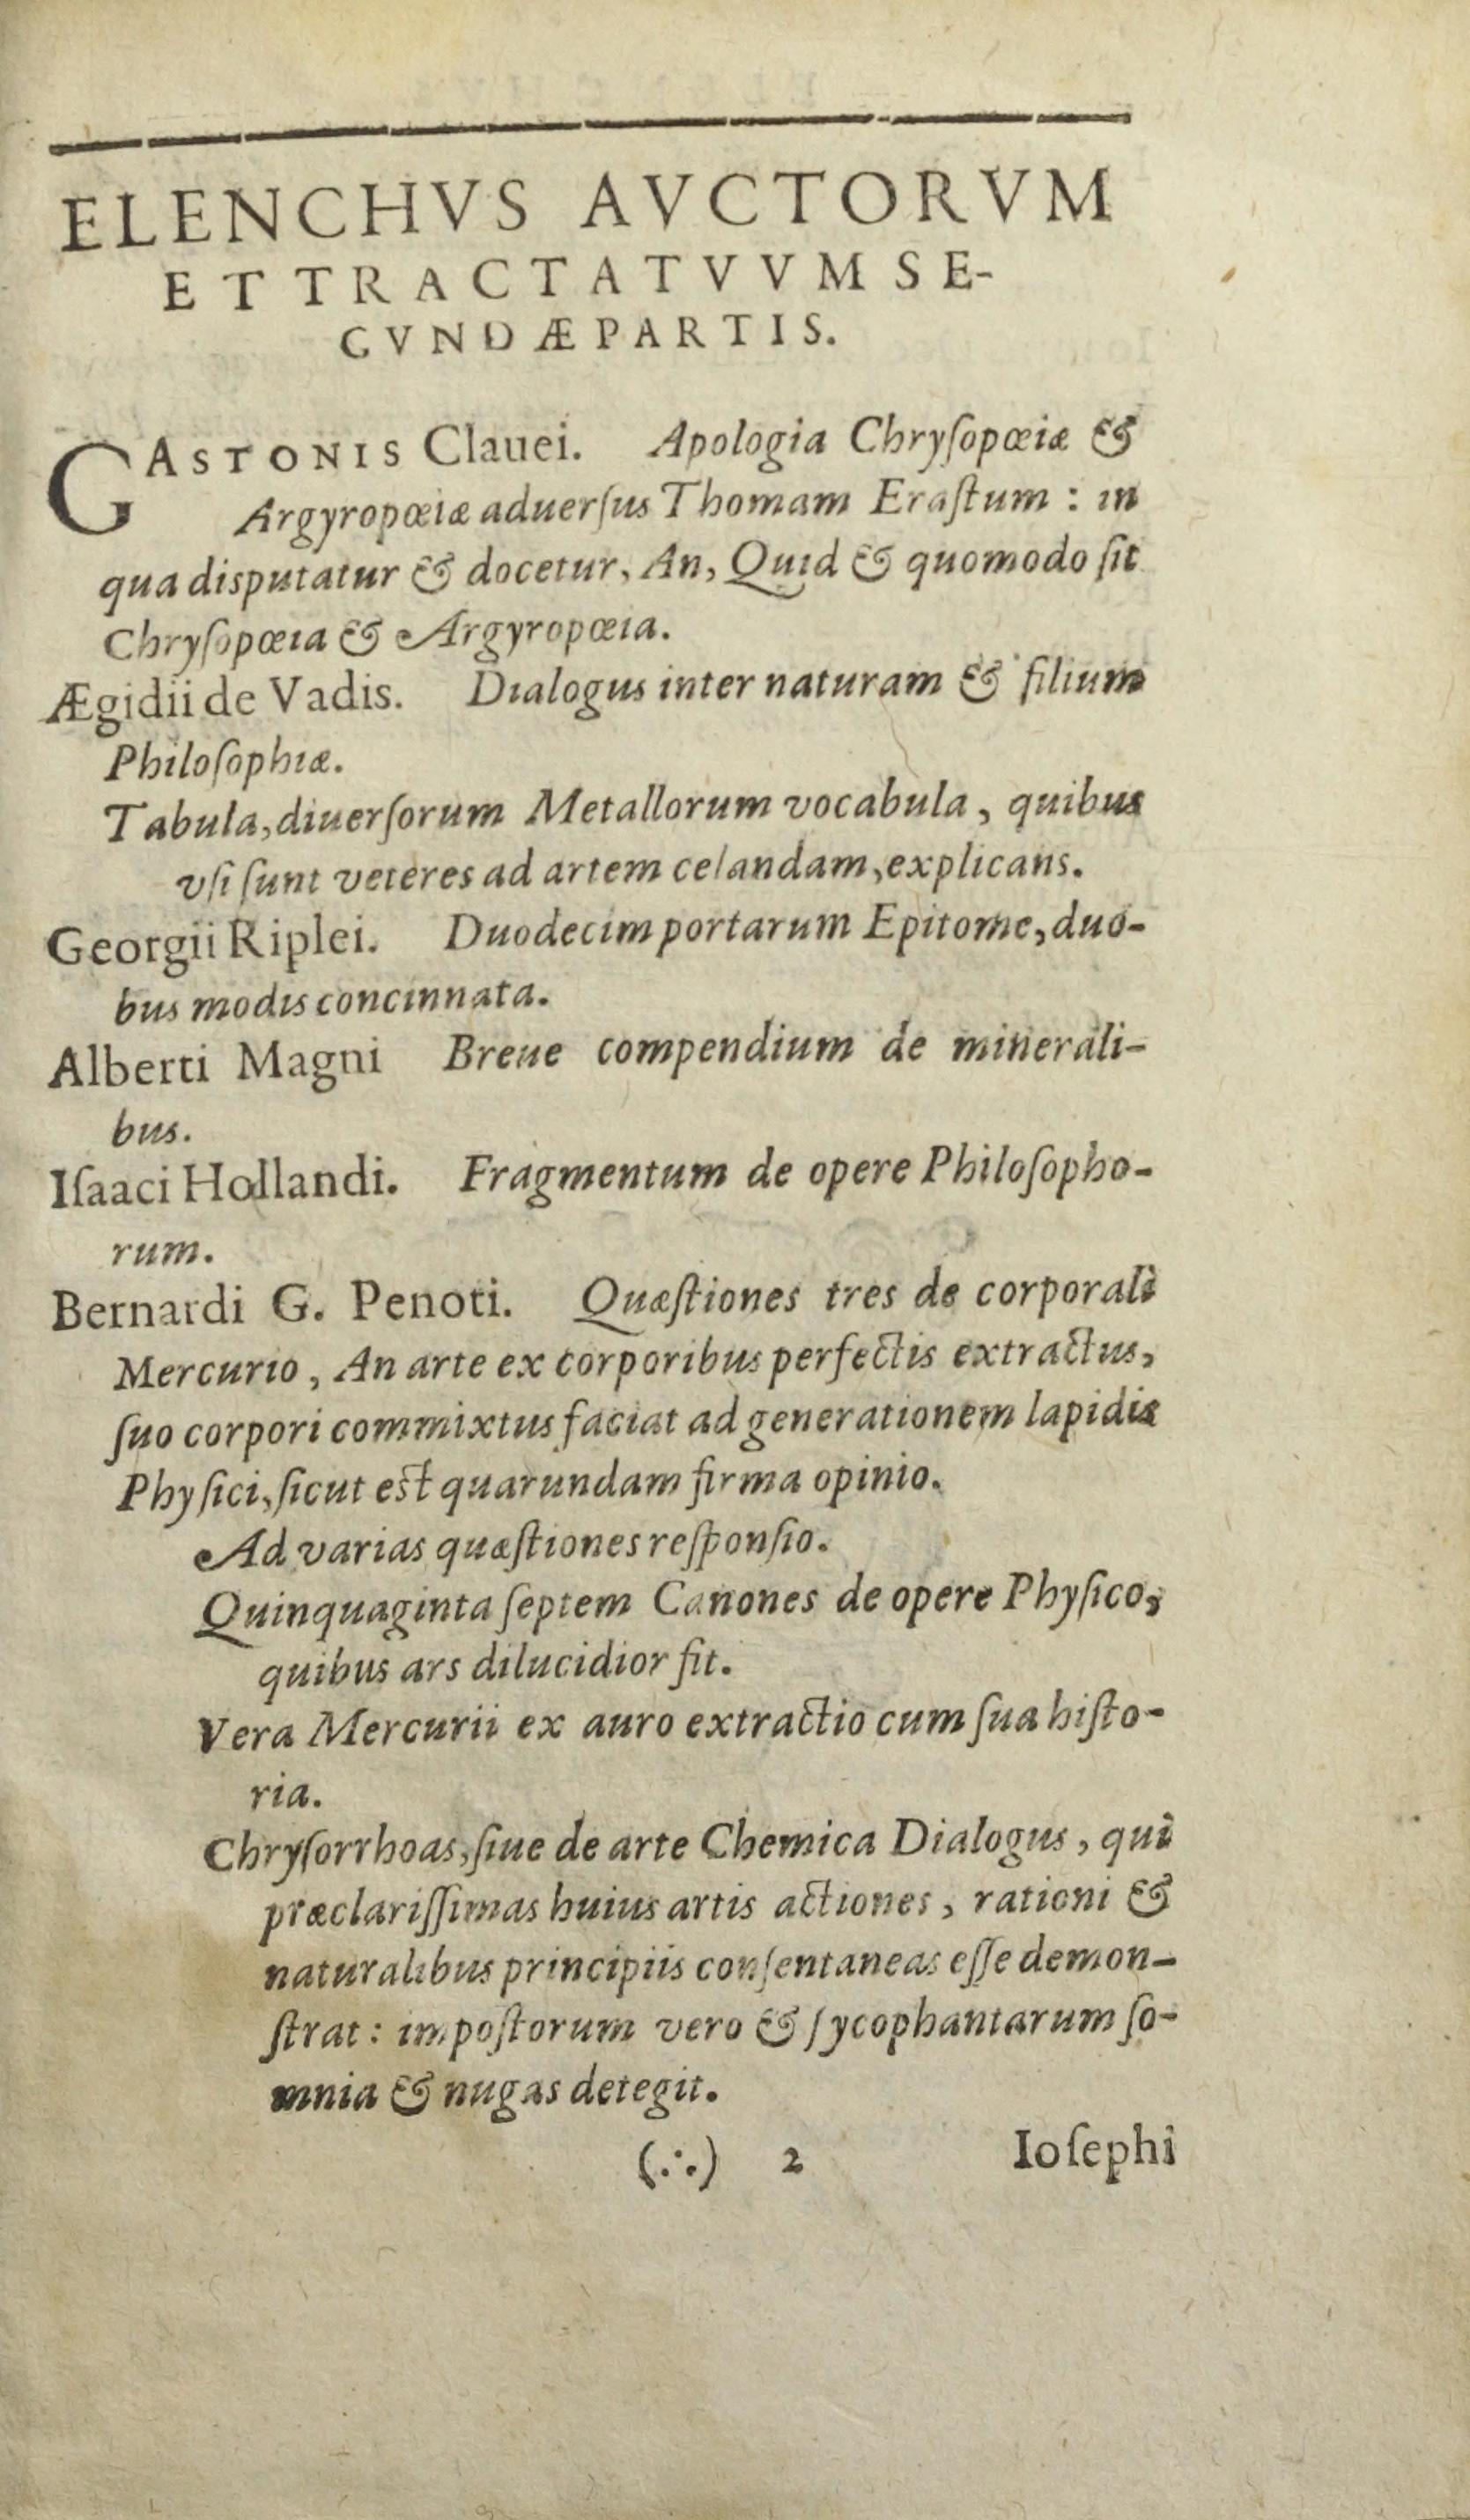 ELENCHVS AVCTORVM
ET TRACTATVVM SE-
CVNDÆ PARTIS.
GASTONIS Clauei. Apologia Chryſopœiæ &
Argyropœiæ aduerſus Thomam Eraſtum : in
qua disputatur & docetur, An, Quid & quomodo ſit
Chryſopœia & Argyropœia.
Ægidii de Vadis. Dialogus inter naturam & filium
Philoſophiæ.
Tabula, diuerſorum Metallorum vocabula, quibus
vſi ſunt veteres ad artem celandam, explicans.
Georgii Riplei. Duodecim portarum Epitome, duo-
bus modis concinnata.
Alberti Magni Breue compendium de minerali-
bus.
Iſaaci Hollandi. Fragmentum de opere Philoſopho-
rum.
Bernardi G. Penoti. Quæſtiones tres de corporali
Mercurio, An arte ex corporibus perfectis extractus,
ſuo corpori commixtus faciat ad generationem lapidis
Phyſici, ſicut est quarundam firma opinio.
Ad varias quæſtiones reſponſio.
Quinquaginta ſeptem Canones de opere Phyſico,
quibus ars dilucidior fit.
Vera Mercurii ex auro extractio cum ſua hiſto-
ria.
Chryſorrhoas, ſiue de arte Chemica Dialogus, qui
præclariſſimas huius artis actiones, rationi &
naturalibus principiis conſentaneas eſſe demon-
ſtrat: impoſtorum vero & ſycophantarum ſo-
mnia & nugas detegit.
(∴) 2 Ioſephi